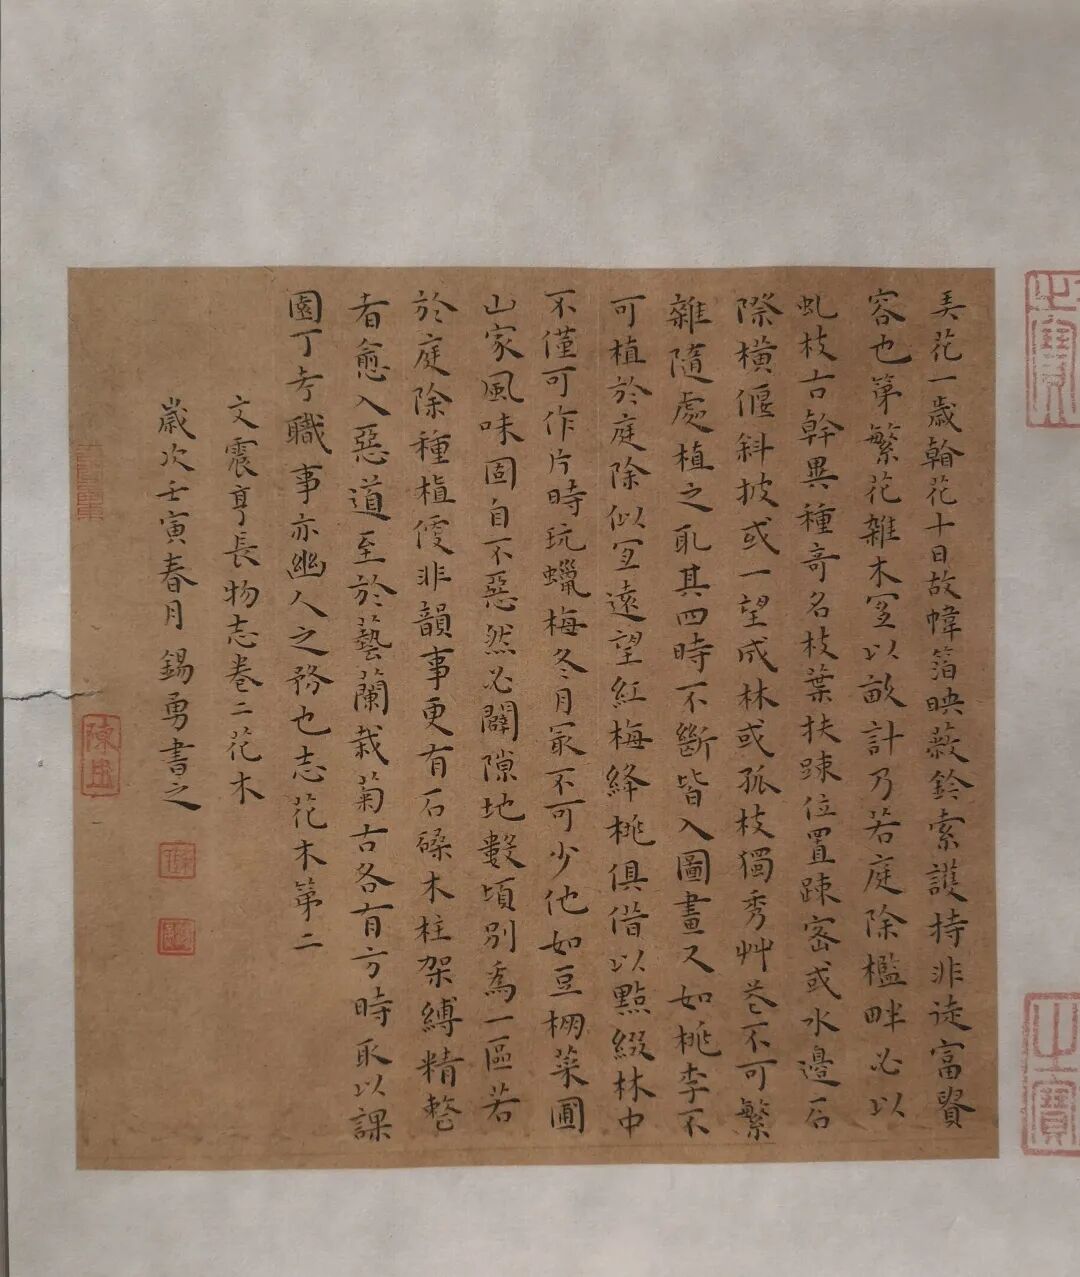 弄花一歲翰花十日故幃箔映蔽鈴索護持非徒富貴
容也第繁花雜木宜以畝計乃若庭除檻畔必以
虬枝古幹異種奇名枝葉扶踈位置踈密或水邊石
際橫偃斜披或一望成林或孤枝獨秀艸花不可繁
雜隨處植之取其四時不斷皆入圖畫又如桃李不
可植於庭除似宜遠望紅梅絳桃俱借以點綴林中
不僅可作片時玩蠟梅冬月冣不可少他如豆棚菜圃
山家風味固自不惡然必闢隙地數頃別為一區若
於庭除種植便非韻事更有石磉木柱架縛精整
者愈入惡道至於藝蘭栽菊古各有方時取以課
園丁考職事亦幽人之務也志花木第二
文震亨長物志卷二花木
歲次壬寅春月錫勇書之
之寶